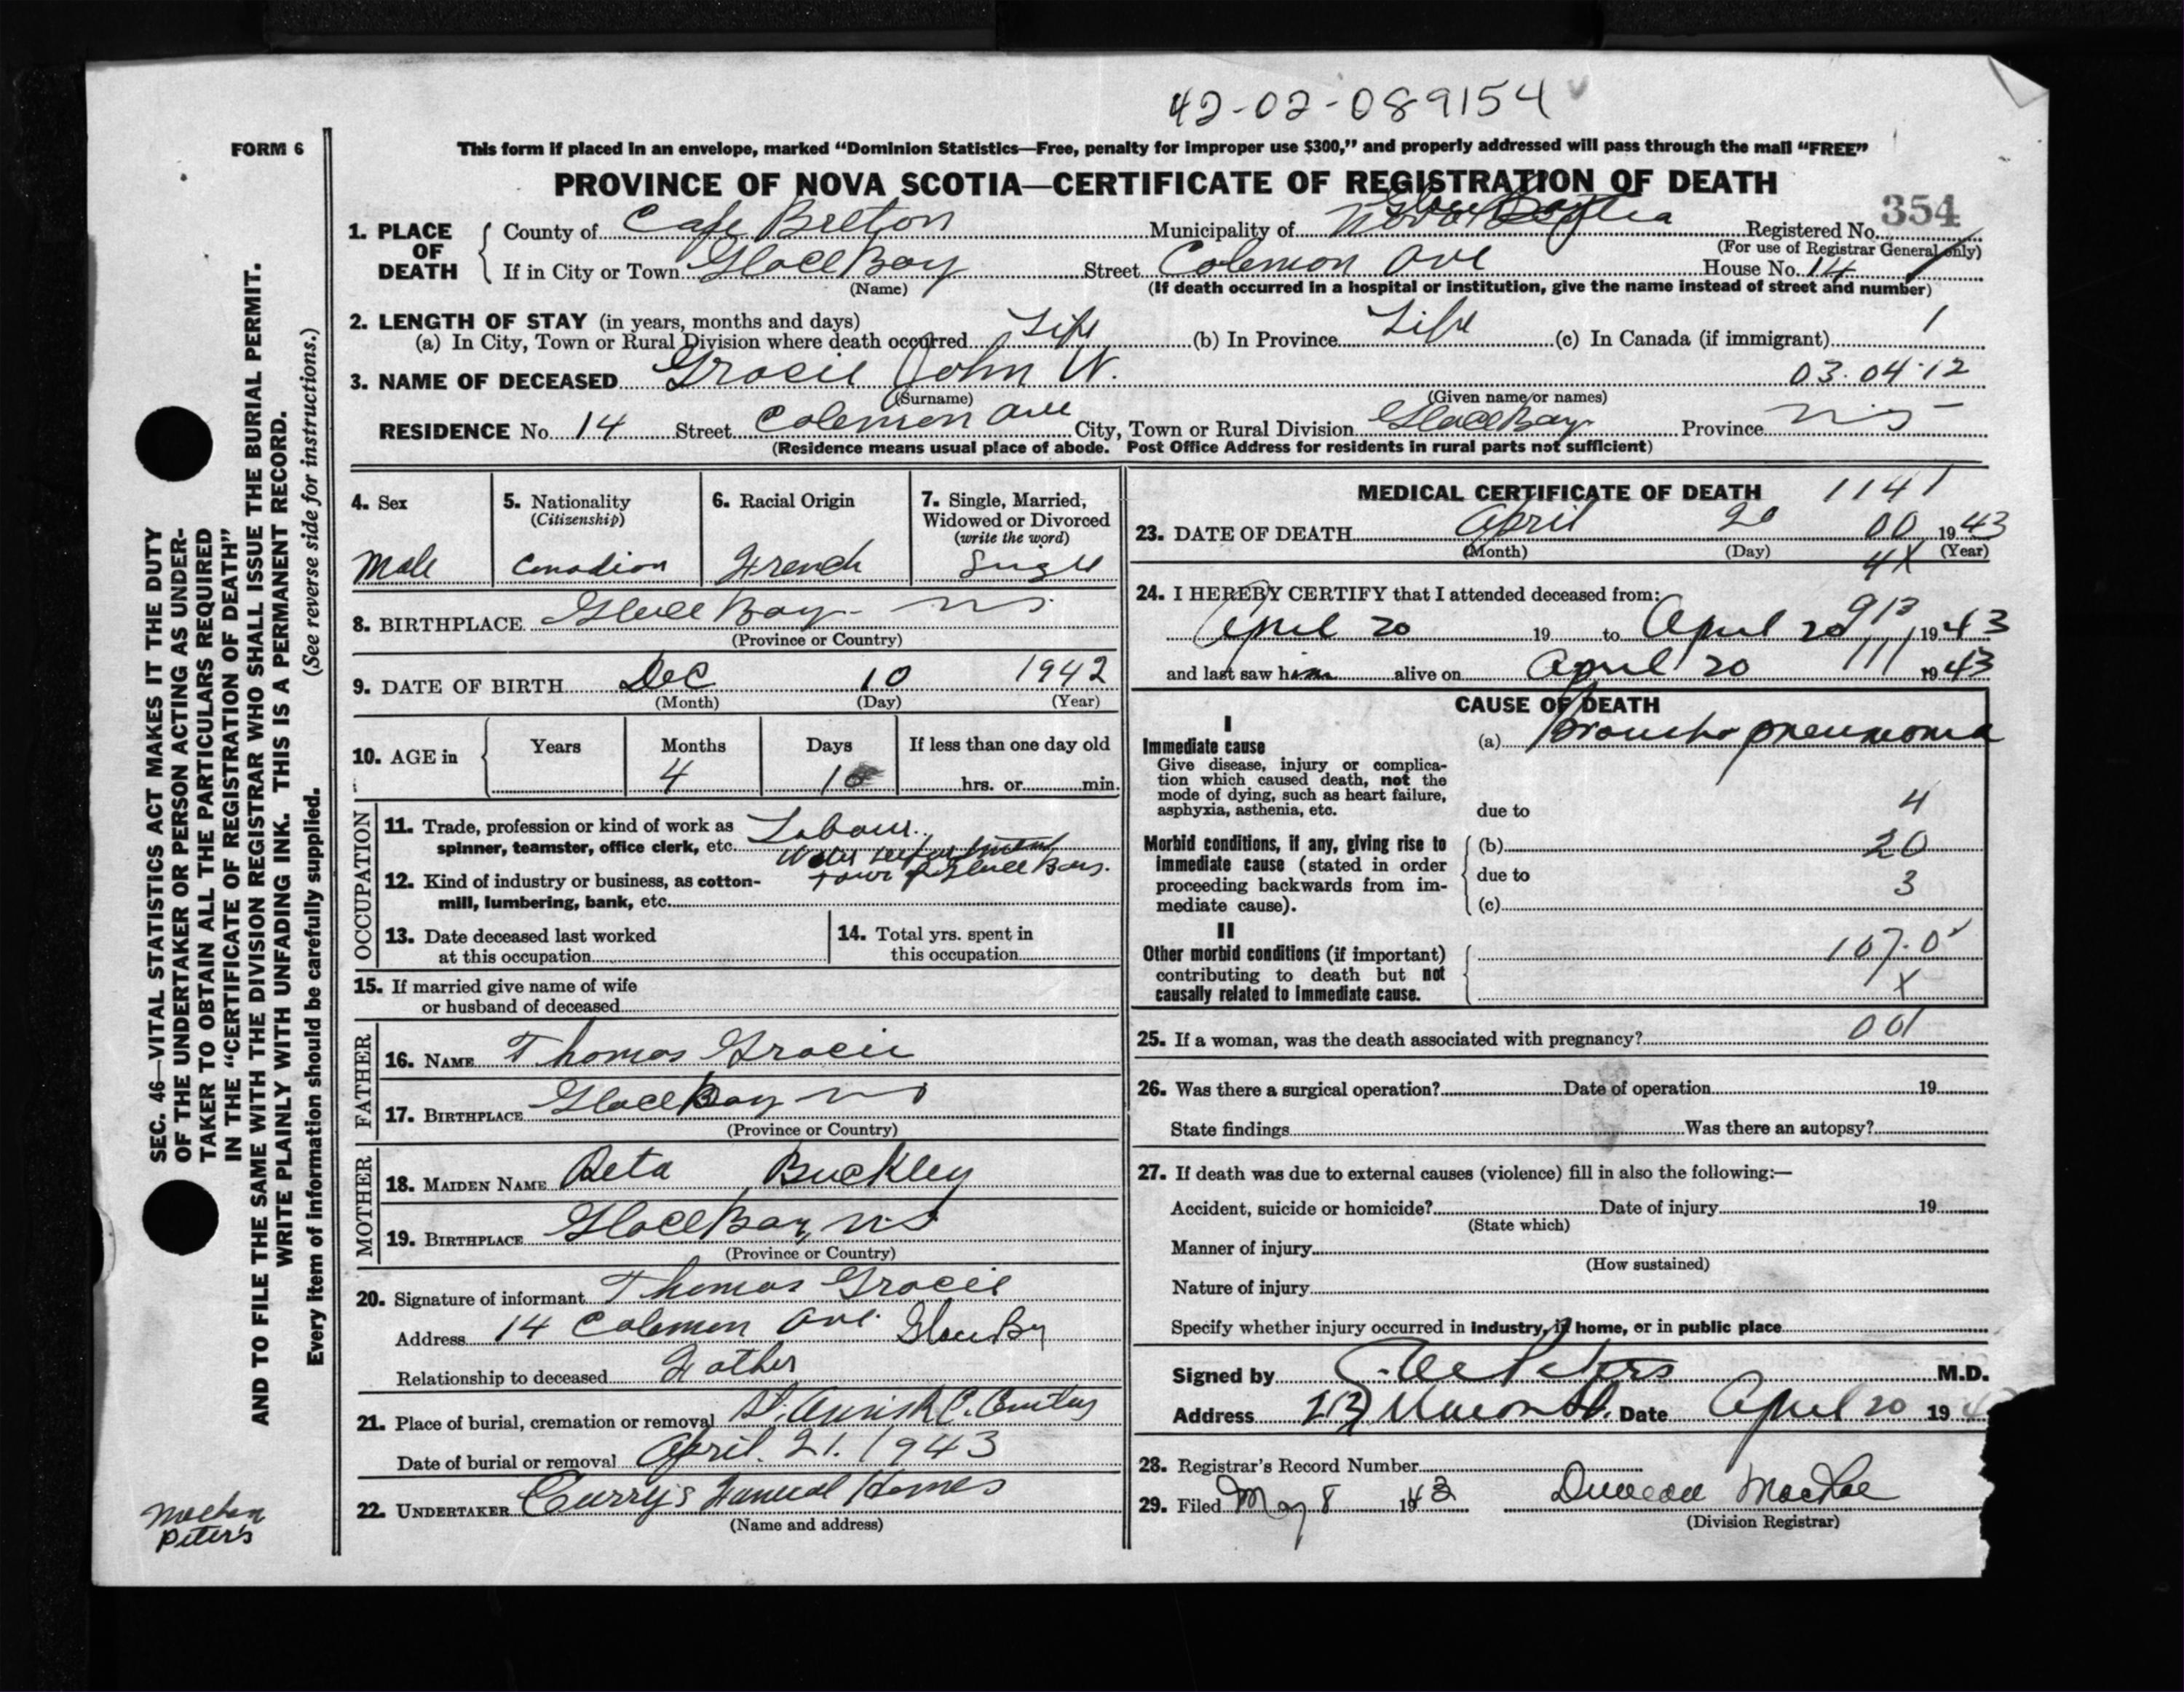 42-02-089154
FORM 6
This form if placed in an envelope, marked “Dominion Statistics—Free, penalty for improper use $300,” and properly addressed will pass through the mail “FREE”
PROVINCE OF NOVA SCOTIA—CERTIFICATE OF REGISTRATION OF DEATH
354
1. PLACE OF DEATH County of Cape Breton Municipality of Nova Scotia Glace Bay Registered No.
(For use of Registrar General only)
If in City or Town Glace Bay Street Colemon Ave House No. 14
(Name) (If death occurred in a hospital or institution, give the name instead of street and number)
2. LENGTH OF STAY (in years, months and days)
(a) In City, Town or Rural Division where death occurred Life (b) In Province Life (c) In Canada (if immigrant) 1
3. NAME OF DECEASED Gracie John W. 03.04.12
(Surname) (Given name or names)
RESIDENCE No. 14 Street Colemon Ave City, Town or Rural Division Glace Bay Province N.S
(Residence means usual place of abode. Post Office Address for residents in rural parts not sufficient)
4. Sex Male
5. Nationality (Citizenship) Canadian
6. Racial Origin French
7. Single, Married, Widowed or Divorced (write the word) Single
8. BIRTHPLACE Glace Bay N.S.
(Province or Country)
9. DATE OF BIRTH Dec 10 1942
(Month) (Day) (Year)
10. AGE in Years Months 4 Days 10 If less than one day old hrs. or min.
OCCUPATION
11. Trade, profession or kind of work as spinner, teamster, office clerk, etc. Labour
12. Kind of industry or business, as cotton-mill, lumbering, bank, etc. Town of Glace Bay.
13. Date deceased last worked at this occupation
14. Total yrs. spent in this occupation
15. If married give name of wife or husband of deceased
FATHER
16. NAME Thomas Gracie
17. BIRTHPLACE Glace Bay N S
(Province or Country)
MOTHER
18. MAIDEN NAME Reta Buckley
19. BIRTHPLACE Glace Bay N.S
(Province or Country)
20. Signature of informant Thomas Gracie
Address 14 Colemon Ave. Glace Bay
Relationship to deceased Father
21. Place of burial, cremation or removal St.
Date of burial or removal April. 21. 1943
22. UNDERTAKER Curry's Funeral Homes
(Name and address)
MEDICAL CERTIFICATE OF DEATH 1141
23. DATE OF DEATH April 20 00 1943
(Month) (Day) (Year)
4X
24. I HEREBY CERTIFY that I attended deceased from:
913
April 20 19 to April 20 1943
111
and last saw him alive on April 20 1943
CAUSE OF DEATH
I
Immediate cause (a) Broncho pneumonia
Give disease, injury or complication which caused death, not the mode of dying, such as heart failure, asphyxia, asthenia, etc.
due to 4
Morbid conditions, if any, giving rise to immediate cause (stated in order proceeding backwards from immediate cause).
(b) 20
due to 3
(c)
II
Other morbid conditions (if important) contributing to death but not causally related to immediate cause.
107.0
X
25. If a woman, was the death associated with pregnancy? 001
26. Was there a surgical operation? Date of operation 19
State findings Was there an autopsy?
27. If death was due to external causes (violence) fill in also the following:—
Accident, suicide or homicide? Date of injury 19
(State which)
Manner of injury
(How sustained)
Nature of injury
Specify whether injury occurred in industry, in home, or in public place
Signed by M.D.
Address Date April 20 19
28. Registrar's Record Number
29. Filed May 8 1943 Duncan MacRae
(Division Registrar)
SEC. 46—VITAL STATISTICS ACT MAKES IT THE DUTY
OF THE UNDERTAKER OR PERSON ACTING AS UNDER-
TAKER TO OBTAIN ALL THE PARTICULARS REQUIRED
IN THE “CERTIFICATE OF REGISTRATION OF DEATH”
AND TO FILE THE SAME WITH THE DIVISION REGISTRAR WHO SHALL ISSUE THE BURIAL PERMIT.
WRITE PLAINLY WITH UNFADING INK. THIS IS A PERMANENT RECORD.
Every item of information should be carefully supplied. (See reverse side for instructions.)
Peter's